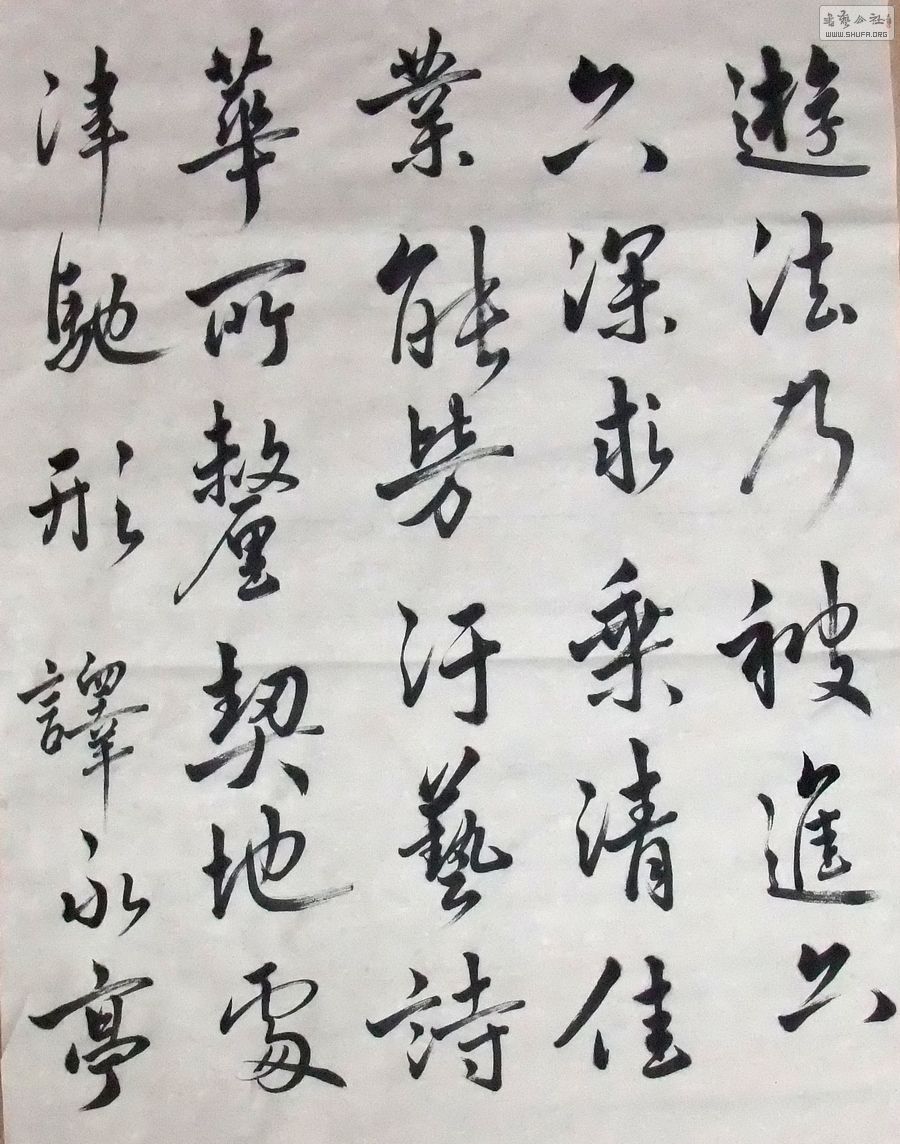 遊法乃被進
深求乘清佳
業能汙藝詩
華所釐契地
津馳形譯永亭
書藝公社
WWW.SHUFA.ORG